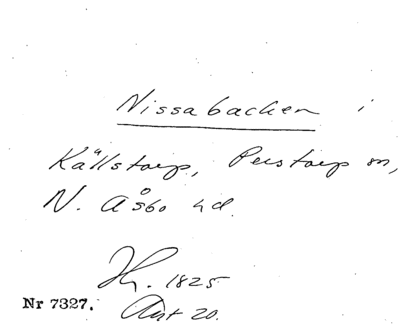 Nissabacken i
Källstorp, Perstorp sn,
N. Åsbo hd.
Hg. 1825
Nr 7327.
Ant 20.